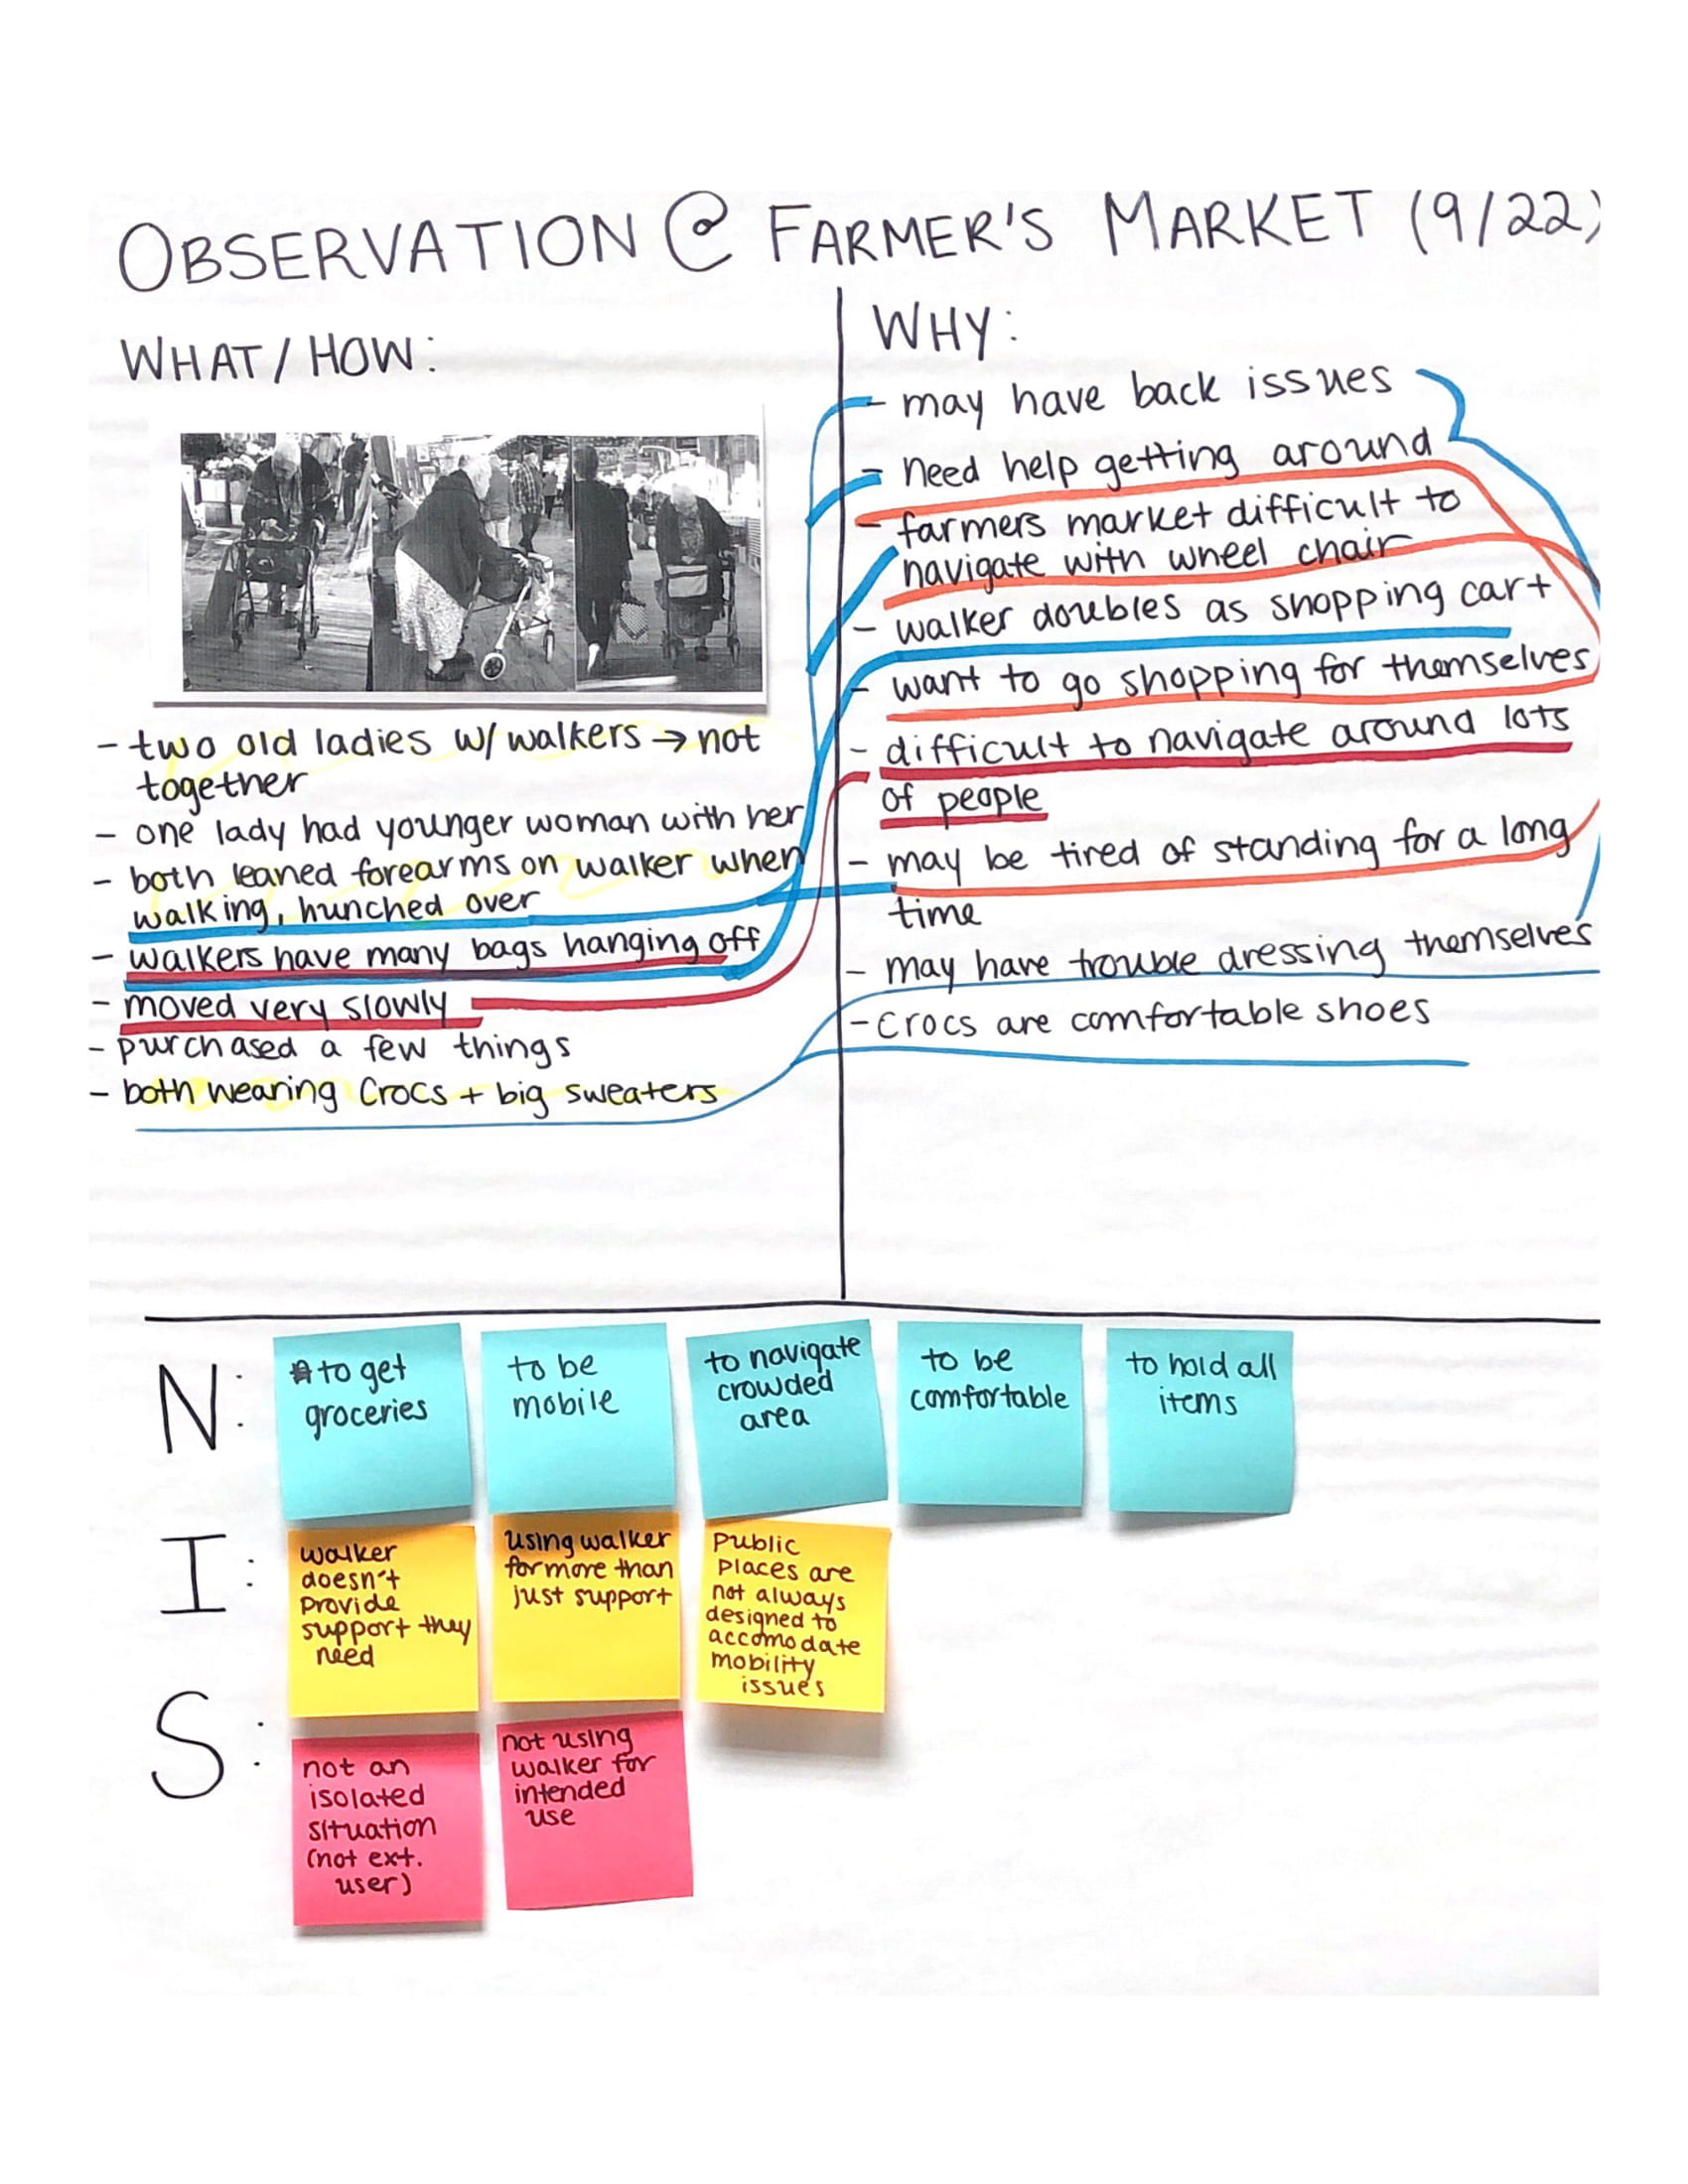 OBSERVATION @ FARMER'S MARKET (9/22)
WHAT/HOW:
- two old ladies w/ walkers → not
together
- one lady had younger woman with her
- both leaned forearms on walker when
walking, hunched over
- walkers have many bags hanging off
- moved very slowly
- purchased a few things
- both wearing Crocs + big sweaters
WHY:
- may have back issues
- need help getting around
- farmers market difficult to
navigate with wheel chair
- walker doubles as shopping cart
- want to go shopping for themselves
- difficult to navigate around lots
of people
- may be tired of standing for a long
time
- may have trouble dressing themselves
- crocs are comfortable shoes
N:
to get
groceries
to be
mobile
to navigate
crowded
area
to be
comfortable
to hold all
items
I:
walker
doesn't
provide
support they
need
using walker
for more than
just support
Public
Places are
not always
designed to
accomodate
mobility
issues
S:
not an
isolated
situation
(not ext.
user)
not using
walker for
intended
use